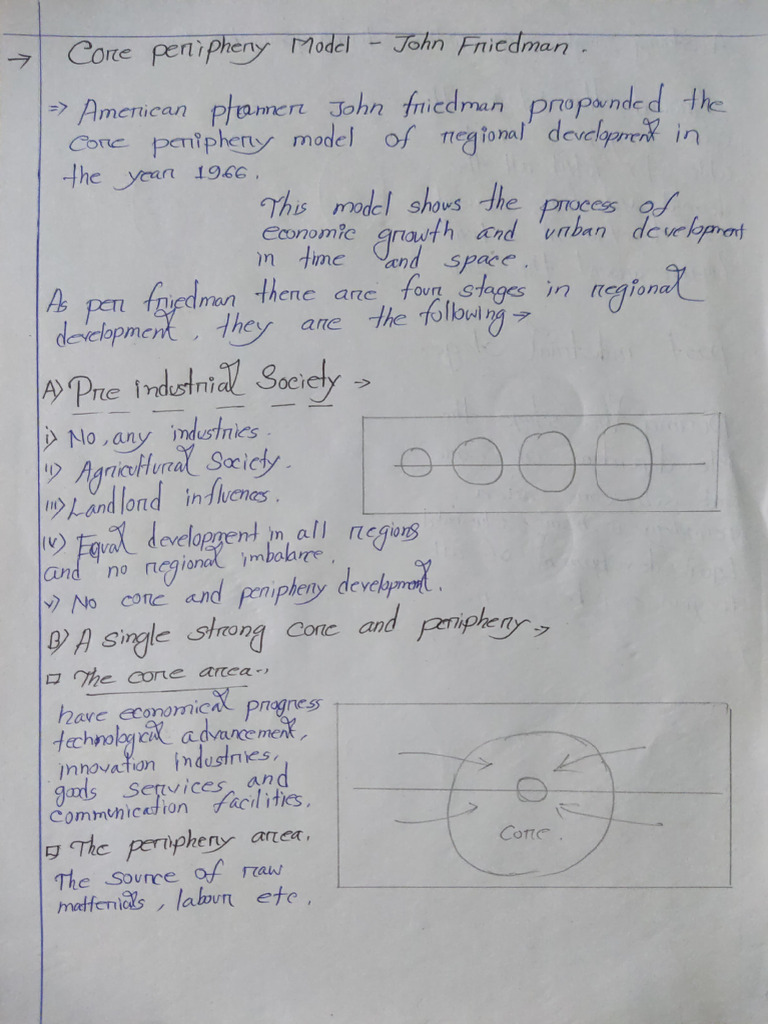 → Core periphery Model - John Friedman.
⇒ American planner John friedman propounded the
core periphery model of regional development in
the year 1966.
This model shows the process of
economic growth and urban development
in time and space.
As per friedman there are four stages in regional
development, they are the following →
A) Pre industrial Society →
i) No, any industries.
ii) Agricultural Society.
iii) Landlord influences.
iv) Equal development in all regions
and no regional imbalance.
v) No core and periphery development.
B) A single strong core and periphery →
□ The core area-,
have economical progress
technological advancement,
innovation industries,
goods services and
communication facilities.
Core.
□ The periphery area.
The source of raw
matterials, labour etc.